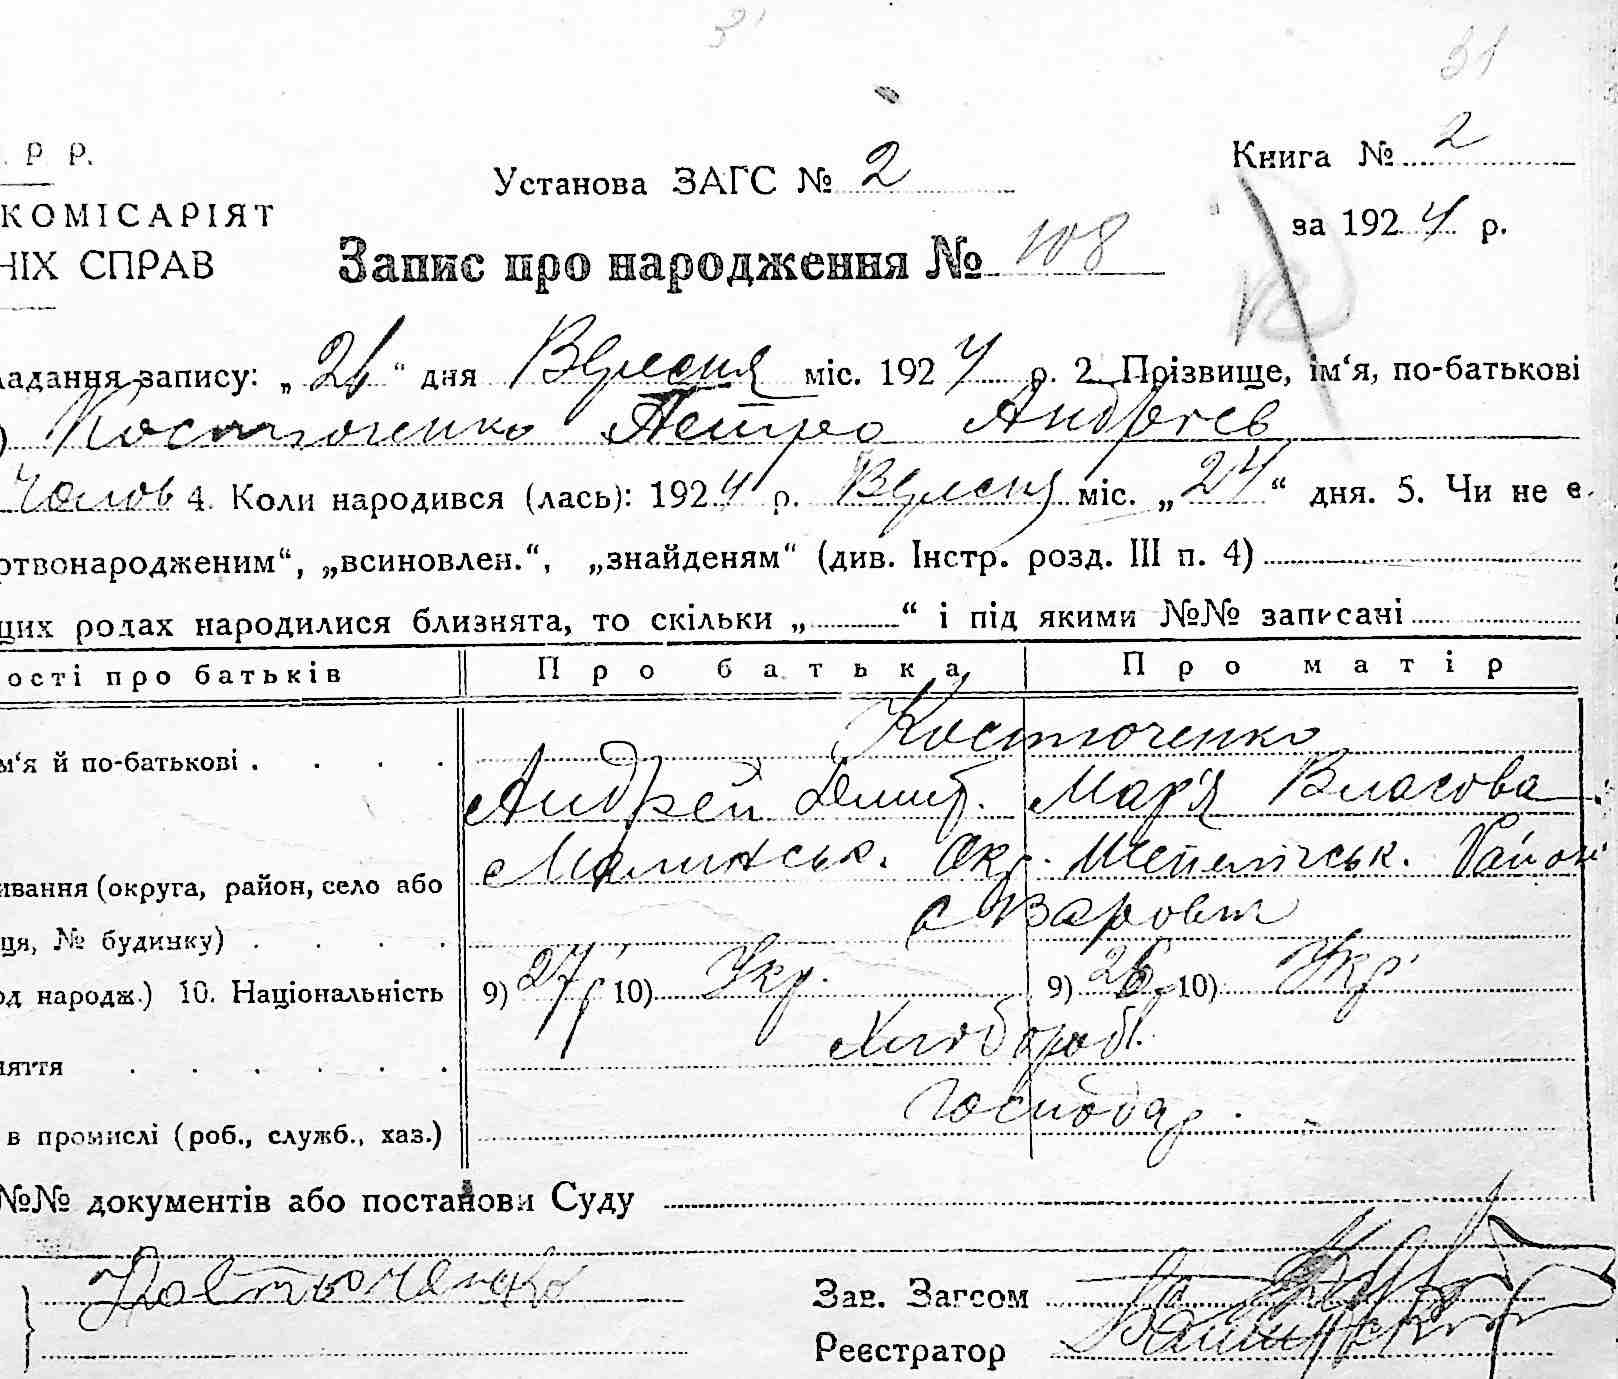 31
. Р Р.
Установа ЗАГС № 2
Книга № 2
КОМІСАРІЯТ
за 1924 р.
НІХ СПРАВ
Запис про народження № 108
ладання запису: „26“ дня Вересня міс. 1924 р. 2. Прізвище, ім‘я, по-батькові
) Костюченко Петро Андреєв
Чолов 4. Коли народився (лась): 1924 р. Вересня міс. „24“ дня. 5. Чи не є
ртвонародженим“, „всиновлен.“, „знайденям“ (див. Інстр. розд. III п. 4)
цих родах народилися близнята, то скільки „ “ і під якими №№ записані
ості про батьків Про батька Про матір
Костюченко
м‘я й по-батькові . . . .
Андрей Дмит. Мар'я Власова
Малинськ. Окр. Шепелічськ. Район
ивання (округа, район, село або
с Варовш
ця, № будинку) . . . .
од народж.) 10. Національність 9) 27р 10) Укр. 9) 26 10) Укр.
Хлібороб.
няття . . . . . .
Господар.
в промислі (роб., служб., хаз.)
№№ документів або постанови Суду
Костюченко
Зав. Загсом
Реєстратор